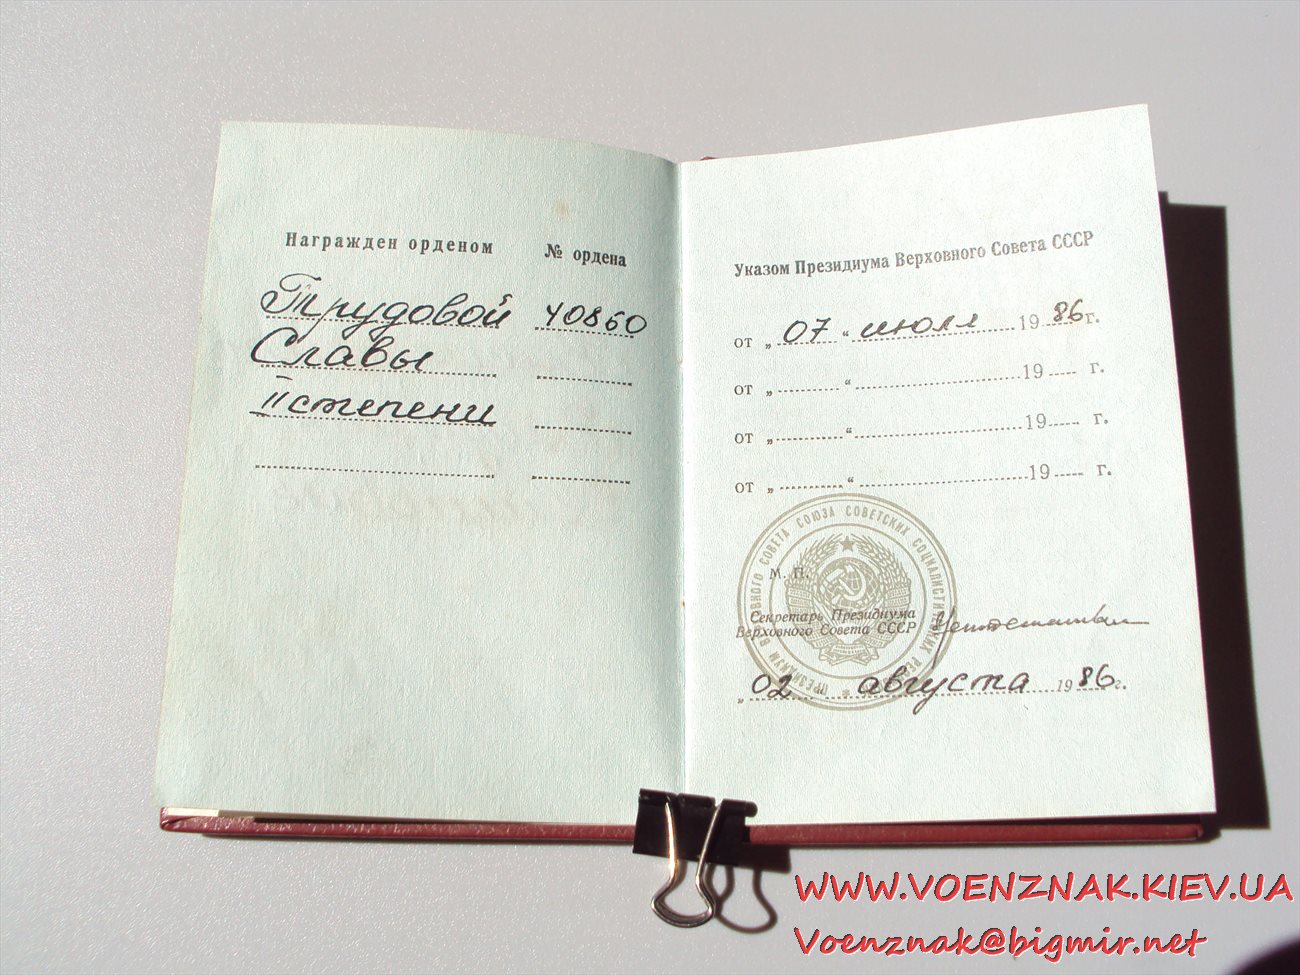 Награжден орденом № ордена
Трудовой 40860
Славы
II степени
Указом Президиума Верховного Совета СССР
от „ 07 “ июля 19 86 г.
от „ “ 19 г.
от „ “ 19 г.
от „ “ 19 г.
ПРЕЗИДИУМ ВЕРХОВНОГО СОВЕТА СОЮЗА СОВЕТСКИХ СОЦИАЛИСТИЧЕСКИХ РЕСПУБЛИК
М. П.
Секретарь Президиума
Верховного Совета СССР
„ 02 августа 19 86 г.
WWW.VOENZNAK.KIEV.UA
Voenznak@bigmir.net